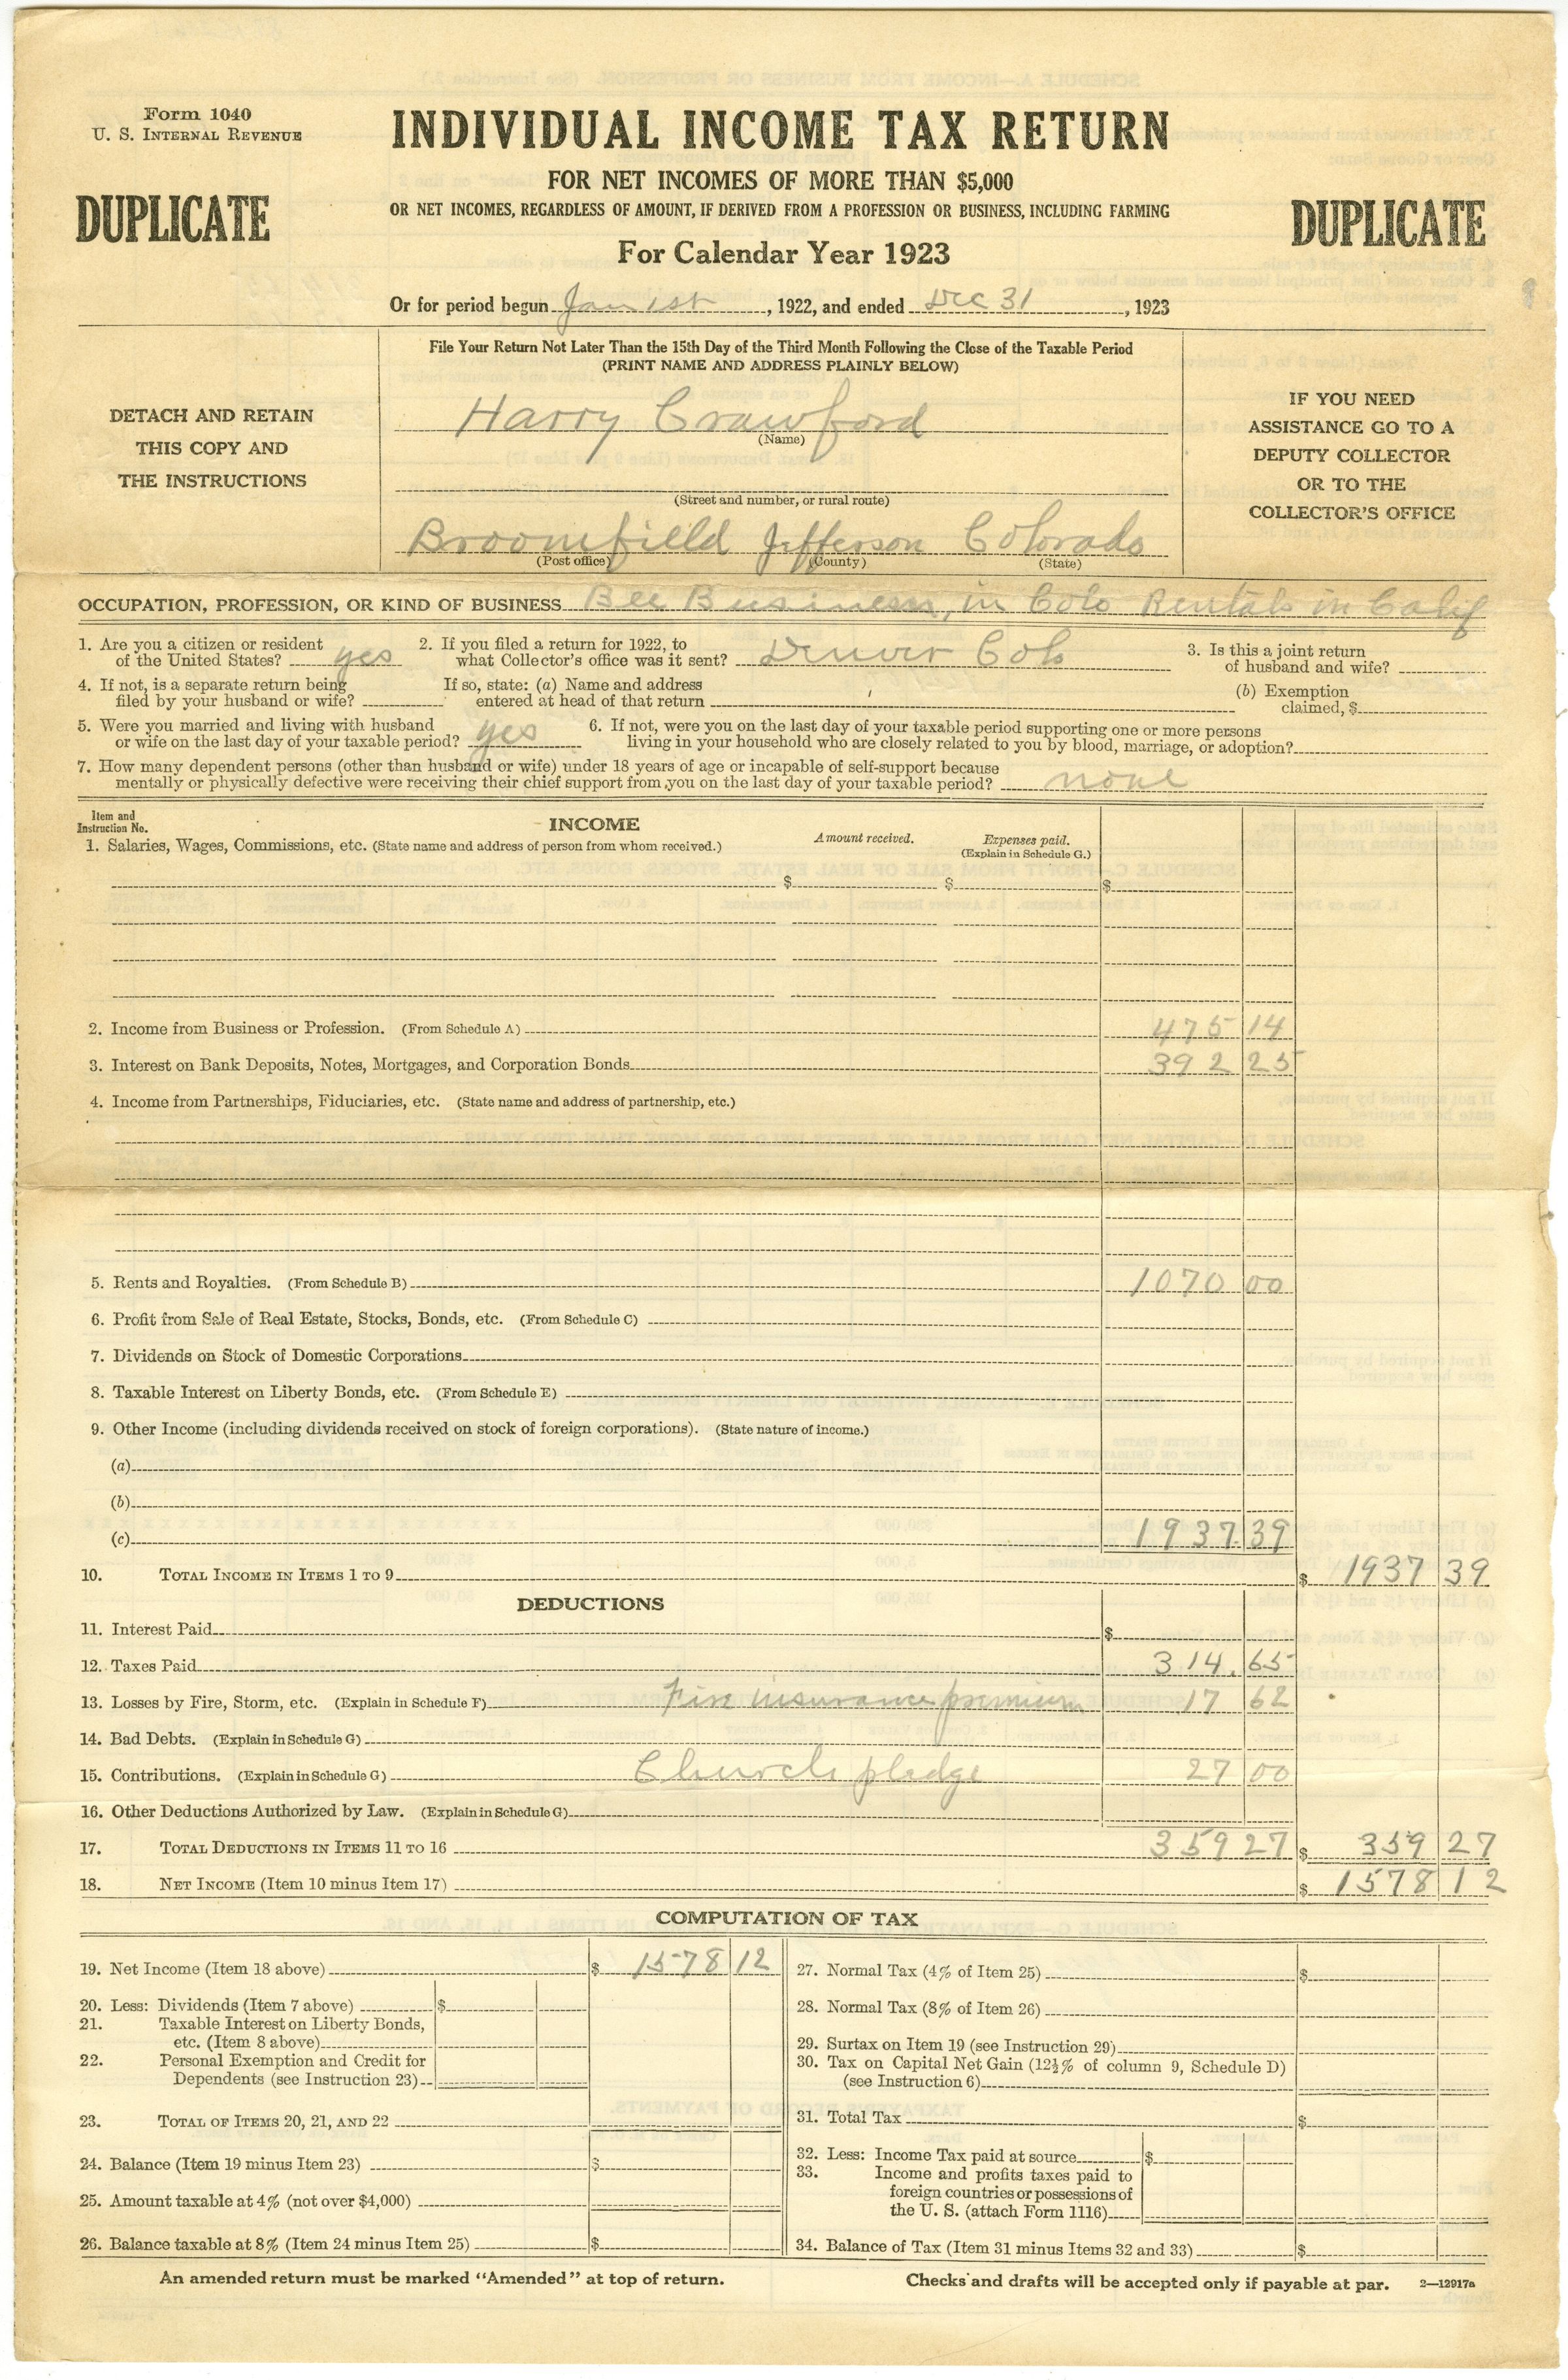 Form 1040
U. S. INTERNAL REVENUE
DUPLICATE
INDIVIDUAL INCOME TAX RETURN
FOR NET INCOMES OF MORE THAN $5,000
OR NET INCOMES, REGARDLESS OF AMOUNT, IF DERIVED FROM A PROFESSION OR BUSINESS, INCLUDING FARMING
For Calendar Year 1923
DUPLICATE
Or for period begun Jan 1st, 1922, and ended Dec 31, 1923
DETACH AND RETAIN
THIS COPY AND
THE INSTRUCTIONS
File Your Return Not Later Than the 15th Day of the Third Month Following the Close of the Taxable Period
(PRINT NAME AND ADDRESS PLAINLY BELOW)
Harry Crawford
(Name)
(Street and number, or rural route)
Broomfield Jefferson Colorado
(Post office) (County) (State)
IF YOU NEED
ASSISTANCE GO TO A
DEPUTY COLLECTOR
OR TO THE
COLLECTOR'S OFFICE
OCCUPATION, PROFESSION, OR KIND OF BUSINESS Bee Business, in Colo Rentals in Calif
1. Are you a citizen or resident of the United States? yes
2. If you filed a return for 1922, to what Collector's office was it sent? Denver Colo
3. Is this a joint return of husband and wife?
4. If not, is a separate return being filed by your husband or wife?
If so, state: (a) Name and address entered at head of that return
(b) Exemption claimed, $
5. Were you married and living with husband or wife on the last day of your taxable period? yes
6. If not, were you on the last day of your taxable period supporting one or more persons living in your household who are closely related to you by blood, marriage, or adoption?
7. How many dependent persons (other than husband or wife) under 18 years of age or incapable of self-support because
mentally or physically defective were receiving their chief support from you on the last day of your taxable period? none
Item and
Instruction No.
INCOME
1. Salaries, Wages, Commissions, etc. (State name and address of person from whom received.) Amount received. Expenses paid.
(Explain in Schedule G.)
$ $ $
2. Income from Business or Profession. (From Schedule A) 475 14
3. Interest on Bank Deposits, Notes, Mortgages, and Corporation Bonds 392 25
4. Income from Partnerships, Fiduciaries, etc. (State name and address of partnership, etc.)
5. Rents and Royalties. (From Schedule B) 1070 00
6. Profit from Sale of Real Estate, Stocks, Bonds, etc. (From Schedule C)
7. Dividends on Stock of Domestic Corporations
8. Taxable Interest on Liberty Bonds, etc. (From Schedule E)
9. Other Income (including dividends received on stock of foreign corporations). (State nature of income.)
(a)
(b)
(c) 1937.39
10. TOTAL INCOME IN ITEMS 1 TO 9 $ 1937 39
DEDUCTIONS
11. Interest Paid $
12. Taxes Paid 314.65
13. Losses by Fire, Storm, etc. (Explain in Schedule F) Fire insurance premium 17 62
14. Bad Debts. (Explain in Schedule G)
15. Contributions. (Explain in Schedule G) Church pledge 27 00
16. Other Deductions Authorized by Law. (Explain in Schedule G)
17. TOTAL DEDUCTIONS IN ITEMS 11 TO 16 359 27 $ 359 27
18. NET INCOME (Item 10 minus Item 17) $ 1578 12
COMPUTATION OF TAX
19. Net Income (Item 18 above) $ 1578 12
20. Less: Dividends (Item 7 above) $
21. Taxable Interest on Liberty Bonds,
etc. (Item 8 above)
22. Personal Exemption and Credit for
Dependents (see Instruction 23)
23. TOTAL OF ITEMS 20, 21, AND 22
24. Balance (Item 19 minus Item 23) $
25. Amount taxable at 4% (not over $4,000)
26. Balance taxable at 8% (Item 24 minus Item 25) $
27. Normal Tax (4% of Item 25) $
28. Normal Tax (8% of Item 26)
29. Surtax on Item 19 (see Instruction 29)
30. Tax on Capital Net Gain (12½% of column 9, Schedule D)
(see Instruction 6)
31. Total Tax $
32. Less: Income Tax paid at source $
33. Income and profits taxes paid to
foreign countries or possessions of
the U. S. (attach Form 1116)
34. Balance of Tax (Item 31 minus Items 32 and 33) $
An amended return must be marked "Amended" at top of return.
Checks and drafts will be accepted only if payable at par. 2—12917a